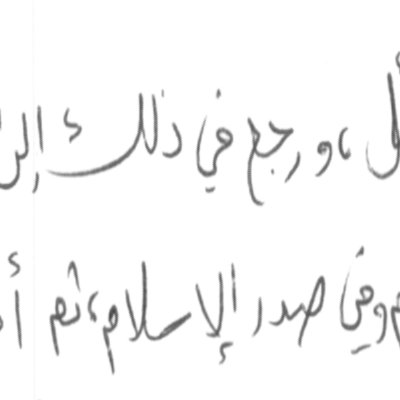 ، ورجع في ذلك إلى
وفي صدر الإسلام، ثم